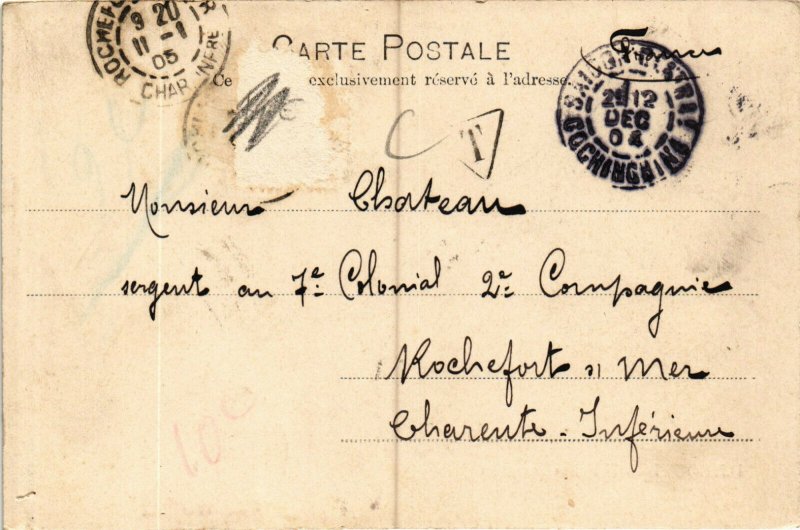 ROCHEFORT
9 20
11 - 1
05
CHAR. INFRE
CARTE POSTALE
France
Ce exclusivement réservé à l'adresse.
SAIGON CENTRAL
1
21 12
DEC
04
COCHINCHINE
T
Monsieur Chateau
sergent au 7e Colonial 2e Compagnie
Rochefort s/ Mer
Charente - Inférieure
100